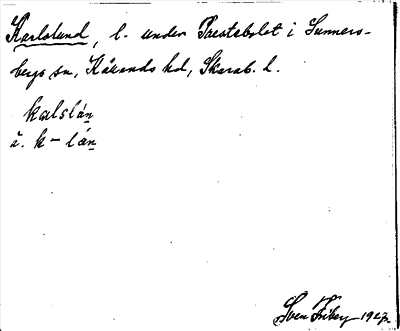 Karlslund, l. under Prestebolet i Sunners-
bergs sn, Kållands hd, Skarab. l.
kalslán
ä. k– lán
Sven Friberg 1927.